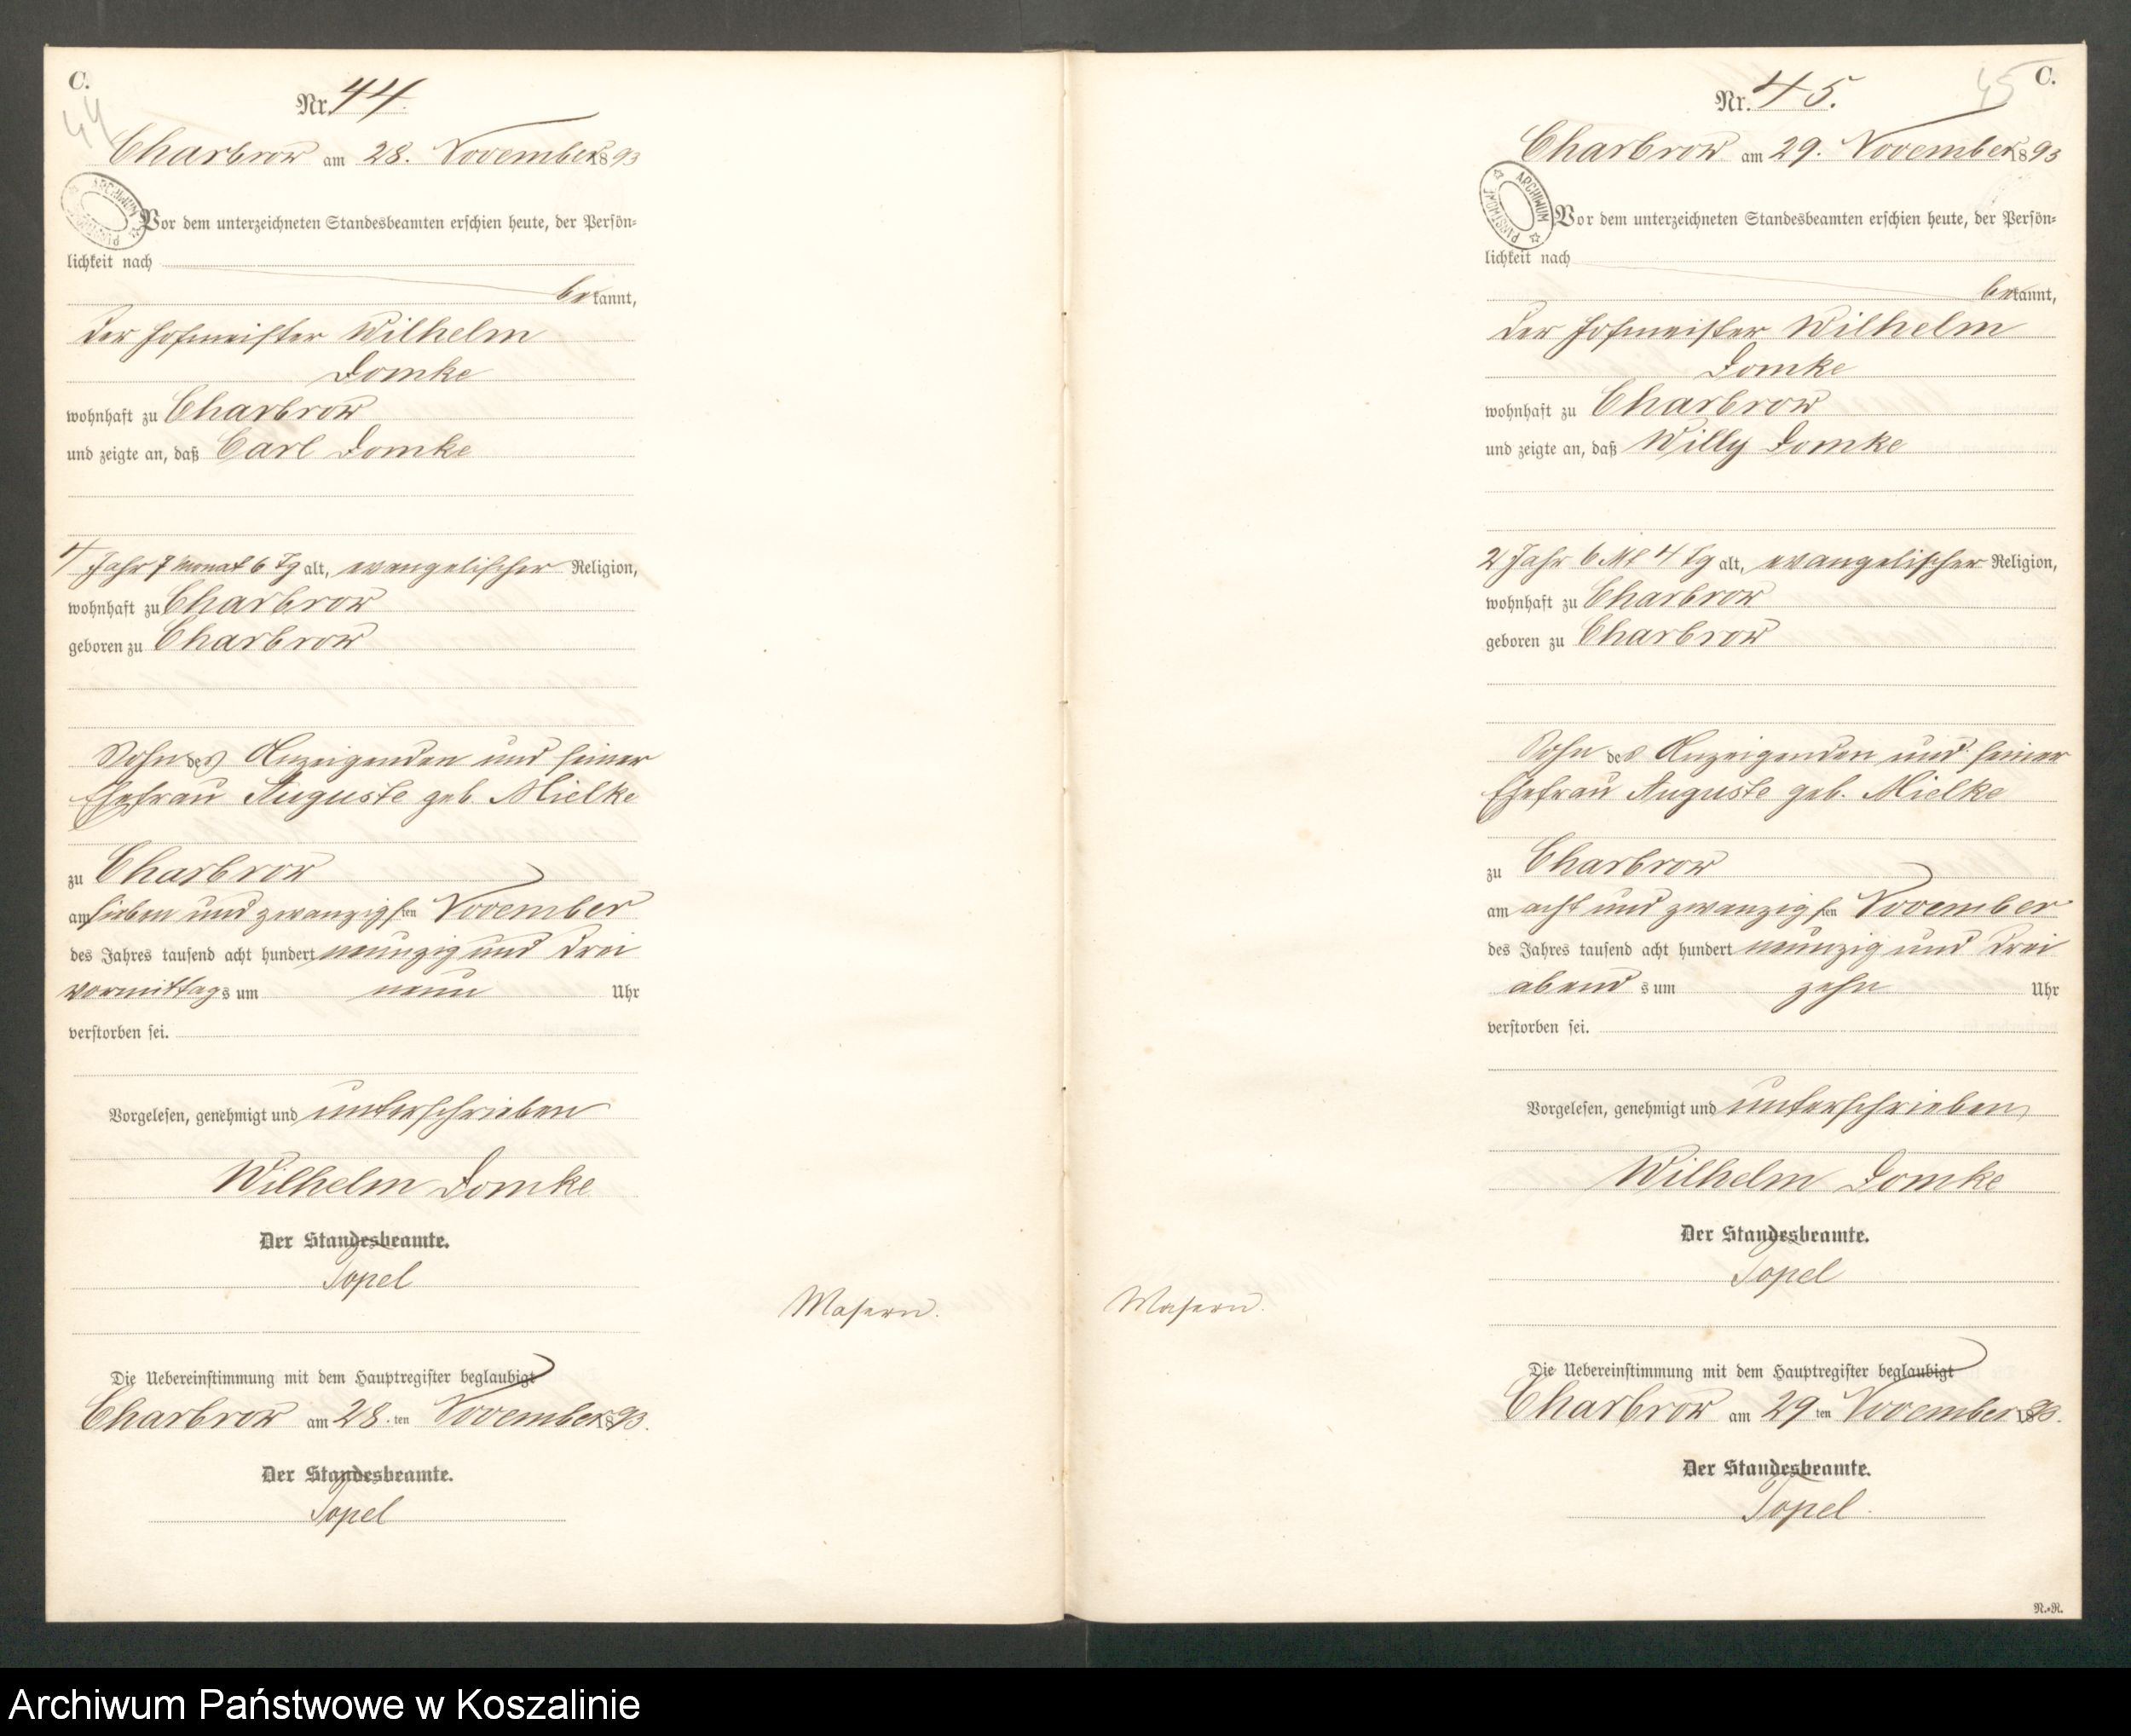 C.
44
Nr. 44.
Charbrow am 28. November 1893
ARCHIWUM PAŃSTWOWE
Vor dem unterzeichneten Standesbeamten erschien heute, der Persön-
lichkeit nach
bekannt,
der Hofmeister Wilhelm
Domke
wohnhaft zu Charbrow
und zeigte an, daß Carl Domke
4 Jahr 7 Monat 6 Tg alt, evangelischer Religion,
wohnhaft zu Charbrow
geboren zu Charbrow
Sohn des Anzeigenden und seiner
Ehefrau Auguste geb. Mielke
zu Charbrow
am sieben und zwanzigsten November
des Jahres tausend acht hundert neunzig und drei
vormittags um neun Uhr
verstorben sei.
Vorgelesen, genehmigt und unterschrieben
Wilhelm Domke
Der Standesbeamte.
Topel
Masern.
Die Uebereinstimmung mit dem Hauptregister beglaubigt
Charbrow am 28.ten November 1893.
Der Standesbeamte.
Topel
C.
45
Nr. 45.
Charbrow am 29. November 1893
ARCHIWUM PAŃSTWOWE
Vor dem unterzeichneten Standesbeamten erschien heute, der Persön-
lichkeit nach
bekannt,
der Hofmeister Wilhelm
Domke
wohnhaft zu Charbrow
und zeigte an, daß Willy Domke
2 Jahr 6 Mt 4 Tg alt, evangelischer Religion,
wohnhaft zu Charbrow
geboren zu Charbrow
Sohn des Anzeigenden und seiner
Ehefrau Auguste geb. Mielke
zu Charbrow
am acht und zwanzigsten November
des Jahres tausend acht hundert neunzig und drei
abends um zehn Uhr
verstorben sei.
Vorgelesen, genehmigt und unterschrieben
Wilhelm Domke
Der Standesbeamte.
Topel
Masern.
Die Uebereinstimmung mit dem Hauptregister beglaubigt
Charbrow am 29ten November 1893.
Der Standesbeamte.
Topel.
R.-R.
Archiwum Państwowe w Koszalinie